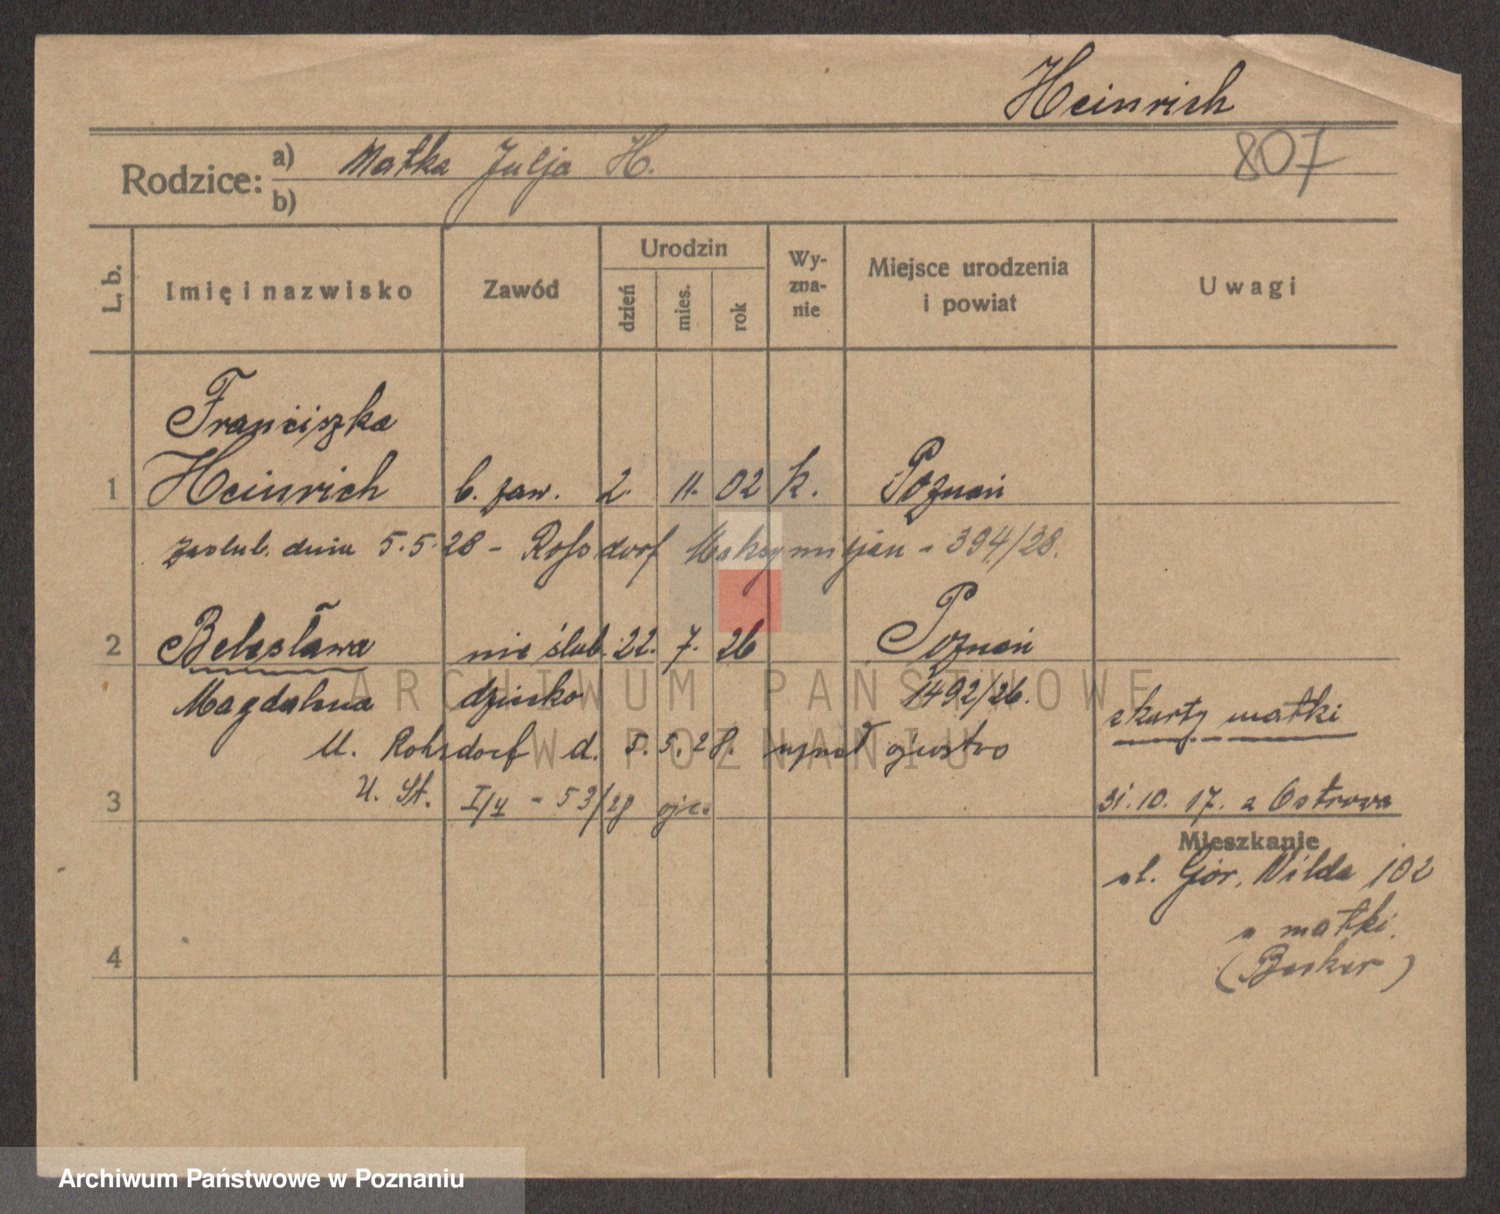 Heinrich
807
Rodzice: a) Matka Julja H.
b)
L. b. Imię i nazwisko Zawód Urodzin dzień mies. rok Wyznanie Miejsce urodzenia i powiat Uwagi
Franciszka
1 Heinrich b. zaw. 2. 11. 02 k. Poznań
zaślub. dnia 5.5.28 - Rohsdorf Maksymiljan - 394/28.
2 Bolesława nieślub. 22. 7. 26 Poznań
Magdalena dziecko 1492/26.
z karty matki
M. Rohsdorf d. 5.5.28. uznał ojcostwo
3 U. St. 53/28 ojca
31.10.17. z Ostrowa
Mieszkanie
ul. Gór. Wilda 102
u matki.
4 (Becker)
ARCHIWUM PAŃSTWOWE
W POZNANIU
Archiwum Państwowe w Poznaniu